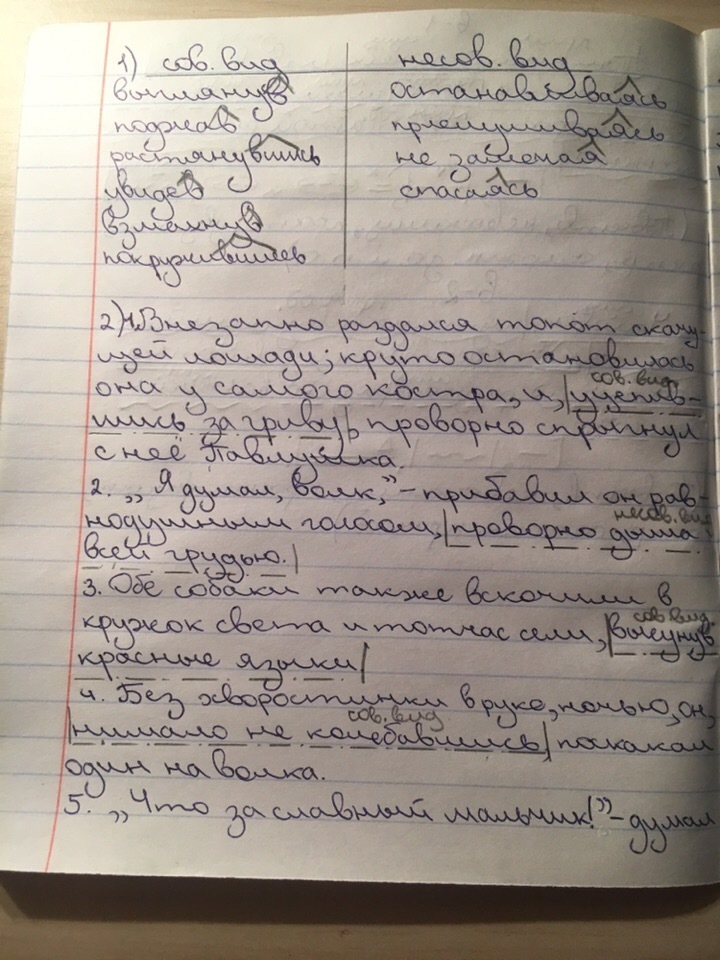 1) сов. вид несов. вид
выглянув останавливаясь
поджав прислушиваясь
растянувшись не замечая
увидев спасаясь
взмахнув
покружившись
2) 1. Внезапно раздался топот скачу-
щей лошади; круто остановилась
она у самого костра, и, уцепив-
сов. вид
шись за гриву, проворно спрыгнул
с неё Павлушка.
2. „Я думал, волк," – прибавил он рав-
нодушным голосом, проворно дыша
несов. вид
всей грудью.
3. Обе собаки также вскочили в
кружок света и тотчас сели, высунув
сов. вид.
красные языки
4. Без хворостинки в руке, ночью, он,
нимало не колебавшись, поскакал
сов. вид
один на волка.
5. „Что за славный мальчик!" – думал